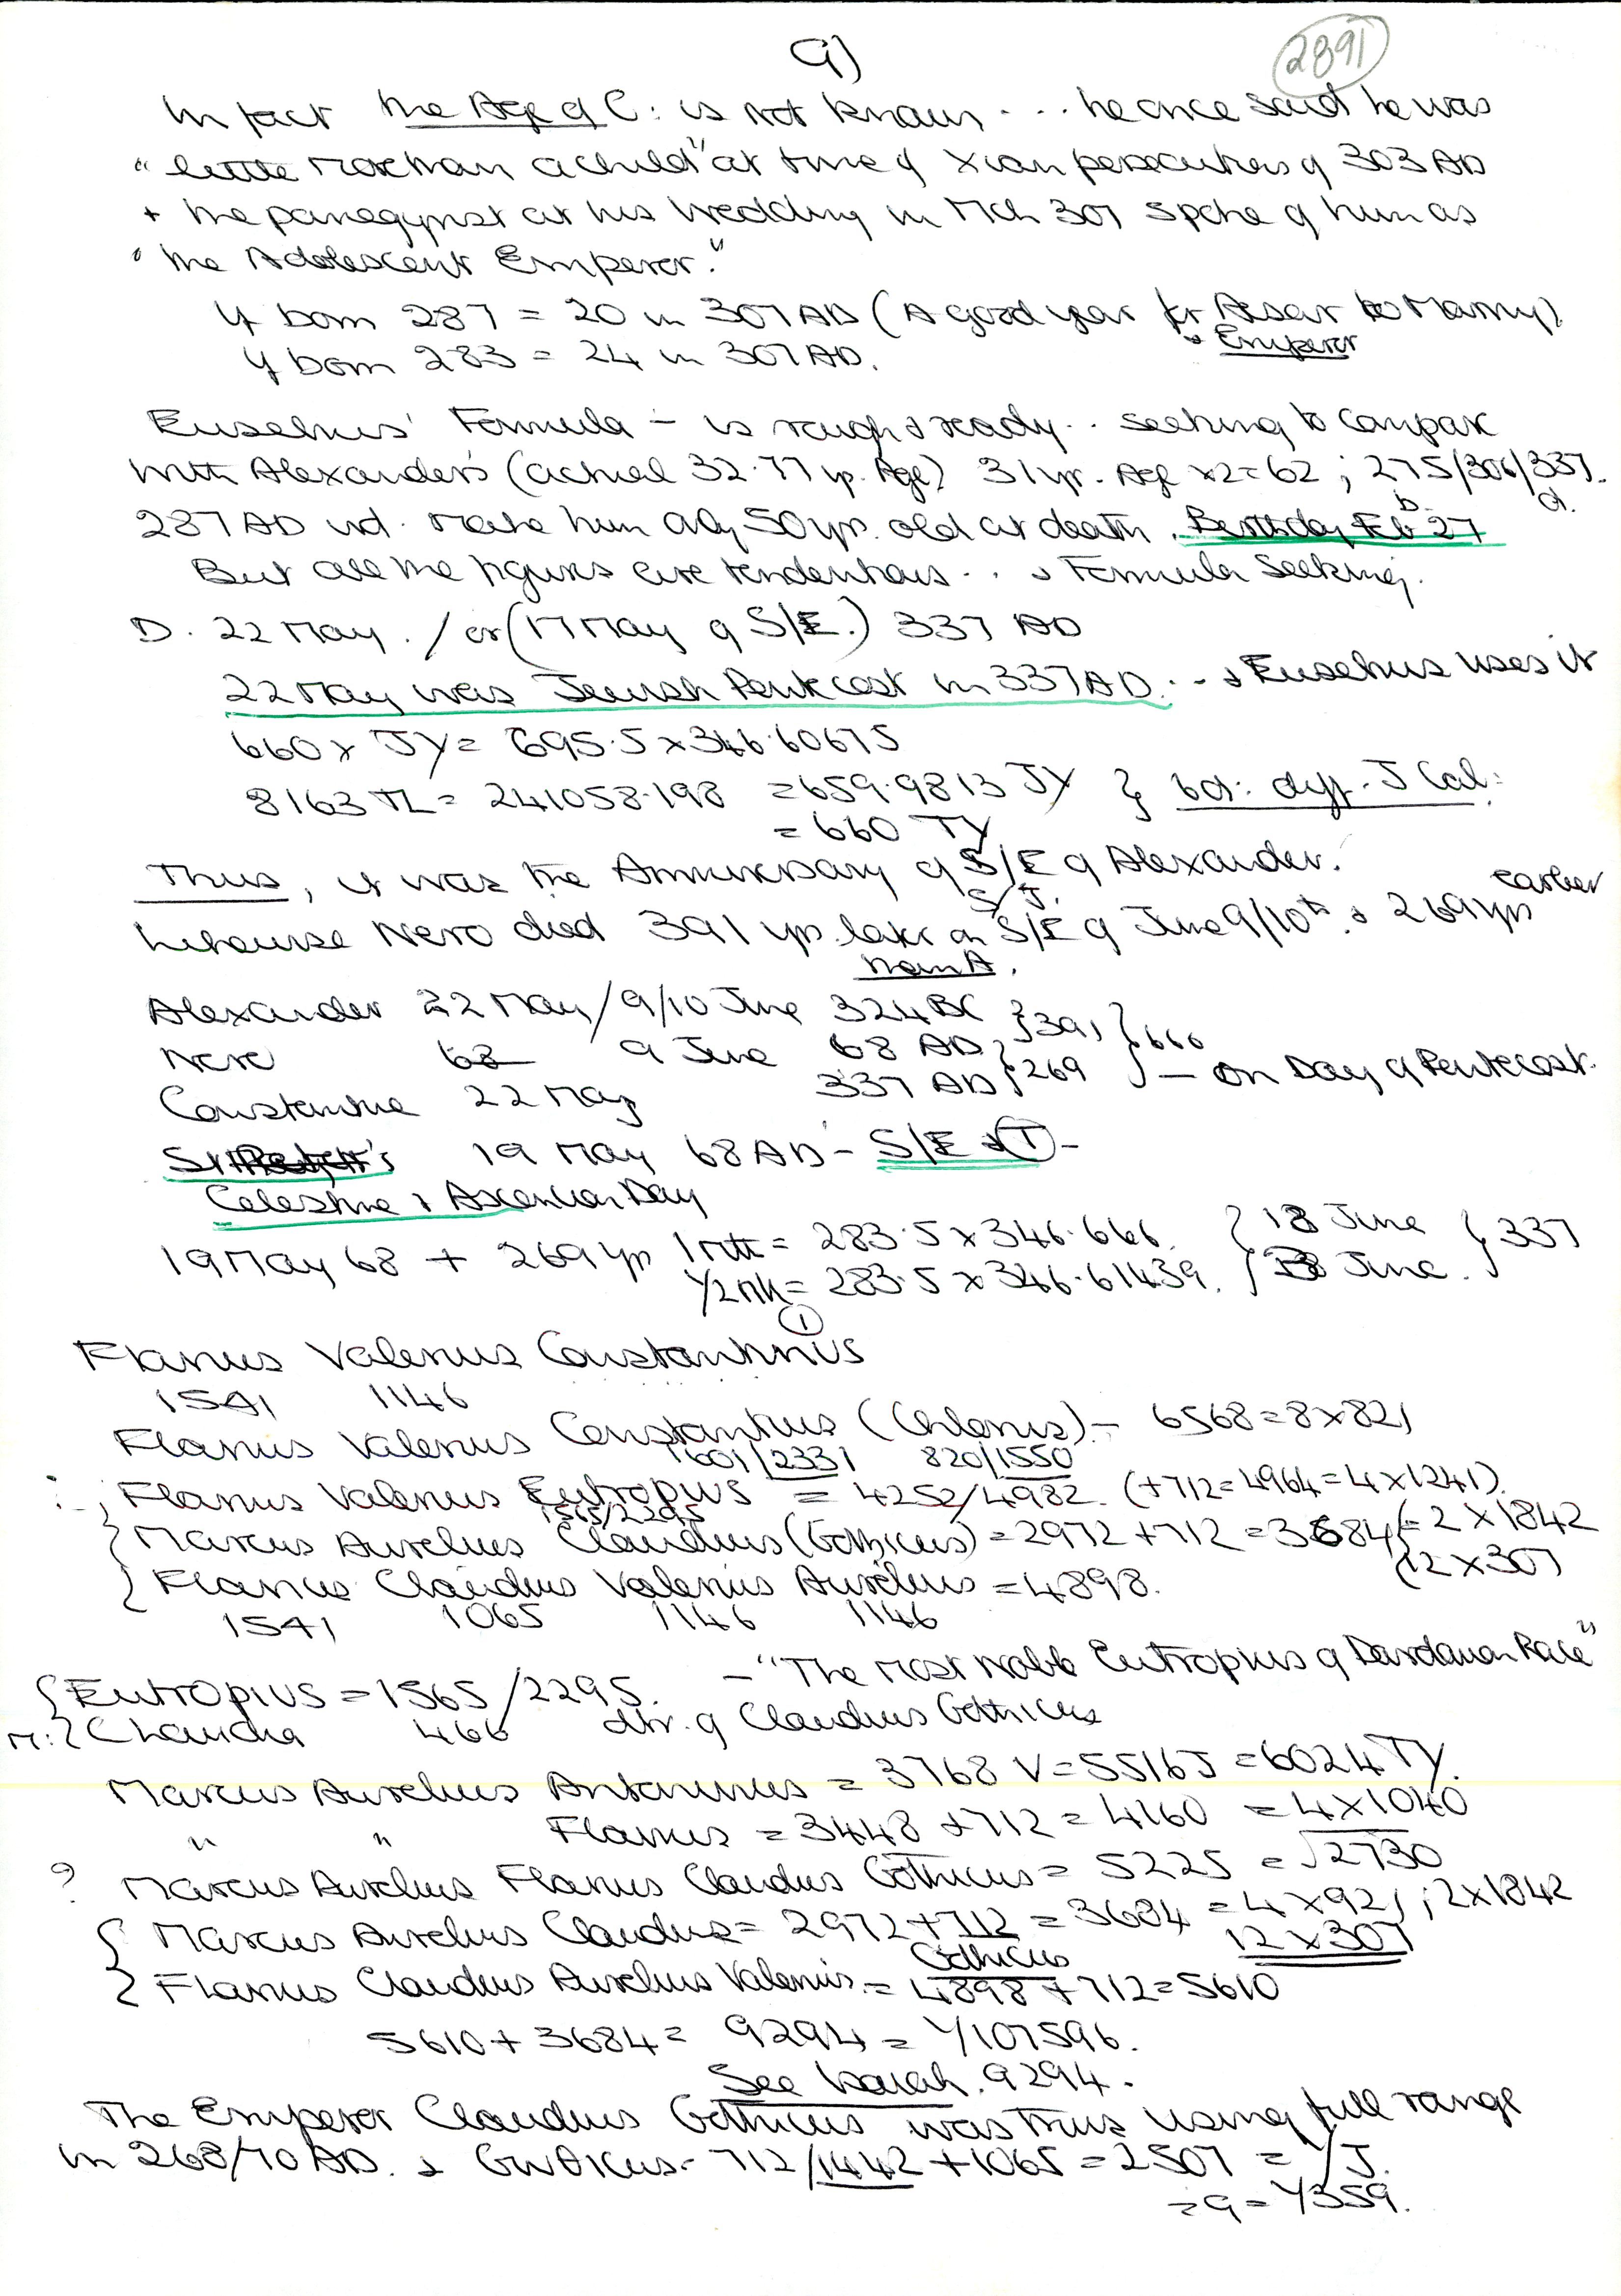 9)
2891
In fact the Age of C: is not known - .. he once said he was
"little more than a child" at time of Xian persecutions of 303 AD
+ the panegyrist at his Wedding in Mch 307 spoke of him as
"the Adolescent Emperor."
If born 287 = 20 in 307 AD (A good year for Caesar to Marry)
Emperor
If born 283 = 24 in 307 AD.
Eusebius' Formula - is rough & ready .. seeking to compare
with Alexander's (actual 32.77 yr. Age) 31 yr. Age x2=62 ; 275/306/337.
b. d.
287 AD wd. make him only 50 yrs. old at death. Birthday Feb 27
But all the figures are tendentious .. & Formula Seeking.
D. 22 May. / or (17 May of S/E.) 337 AD
22 May was Jewish Pentecost in 337 AD. - & Eusebius uses it
660 x JY = 695.5 x 346.60675
8163 TL = 241058.198 = 659.9813 JY } 6d: diff. J Cal:
= 660 TY
Thus, it was the Anniversary of S/E of Alexander.
S/J.
Likewise Nero died 391 yrs later on S/E of June 9/10th. & 269 yrs earlier
from A.
Alexander 22 May/9/10 June 324 BC } 391 } 660
Nero 68 9 June 68 AD } 269 } - On Day of Pentecost.
Constantine 22 May 337 AD
19 May 68 AD - S/E & (T) -
Celestine & Ascension Day
19 May 68 + 269 yrs 1 Mth = 283.5 x 346.666. } 18 June } 337
1/2 Mth = 283.5 x 346.61439. } June.
(1)
Flavius Valerius Constantinus
1541 1146
Flavius Valerius Constantius (Chlorus) - 6568 = 8 x 821
1601/2331 820/1550
Flavius Valerius Eutropius = 4252/4982. (+712=4964=4x1241).
1565/2295
{ Marcus Aurelius Claudius (Gothicus) = 2972 + 712 = 3684 (= 2 x 1842
(12 x 307
{ Flavius Claudius Valerius Aurelius = 4898.
1541 1065 1146 1146
{ Eutropius = 1565/2295. - "The Most Noble Eutropius of Dardanian Race"
M: { Claudia 466 dtr. of Claudius Gothicus
Marcus Aurelius Antoninus = 3768 V = 5516 J = 6024 TY.
" " Flavius = 3448 + 712 = 4160 = 4 x 1040
? Marcus Aurelius Flavius Claudius Gothicus = 5225 = √2730
{ Marcus Aurelius Claudius = 2972 + 712 = 3684 = 4 x 921 ; 2 x 1842
Gothicus 12 x 307
{ Flavius Claudius Aurelius Valerius = 4898 + 712 = 5610
5610 + 3684 = 9294 = Y107596.
See Isaiah. 9294.
The Emperor Claudius Gothicus was thus using full range
in 268/70 AD. & Gothicus - 712/1442 + 1065 = 2507 = Y/J.
= 9 = Y359.